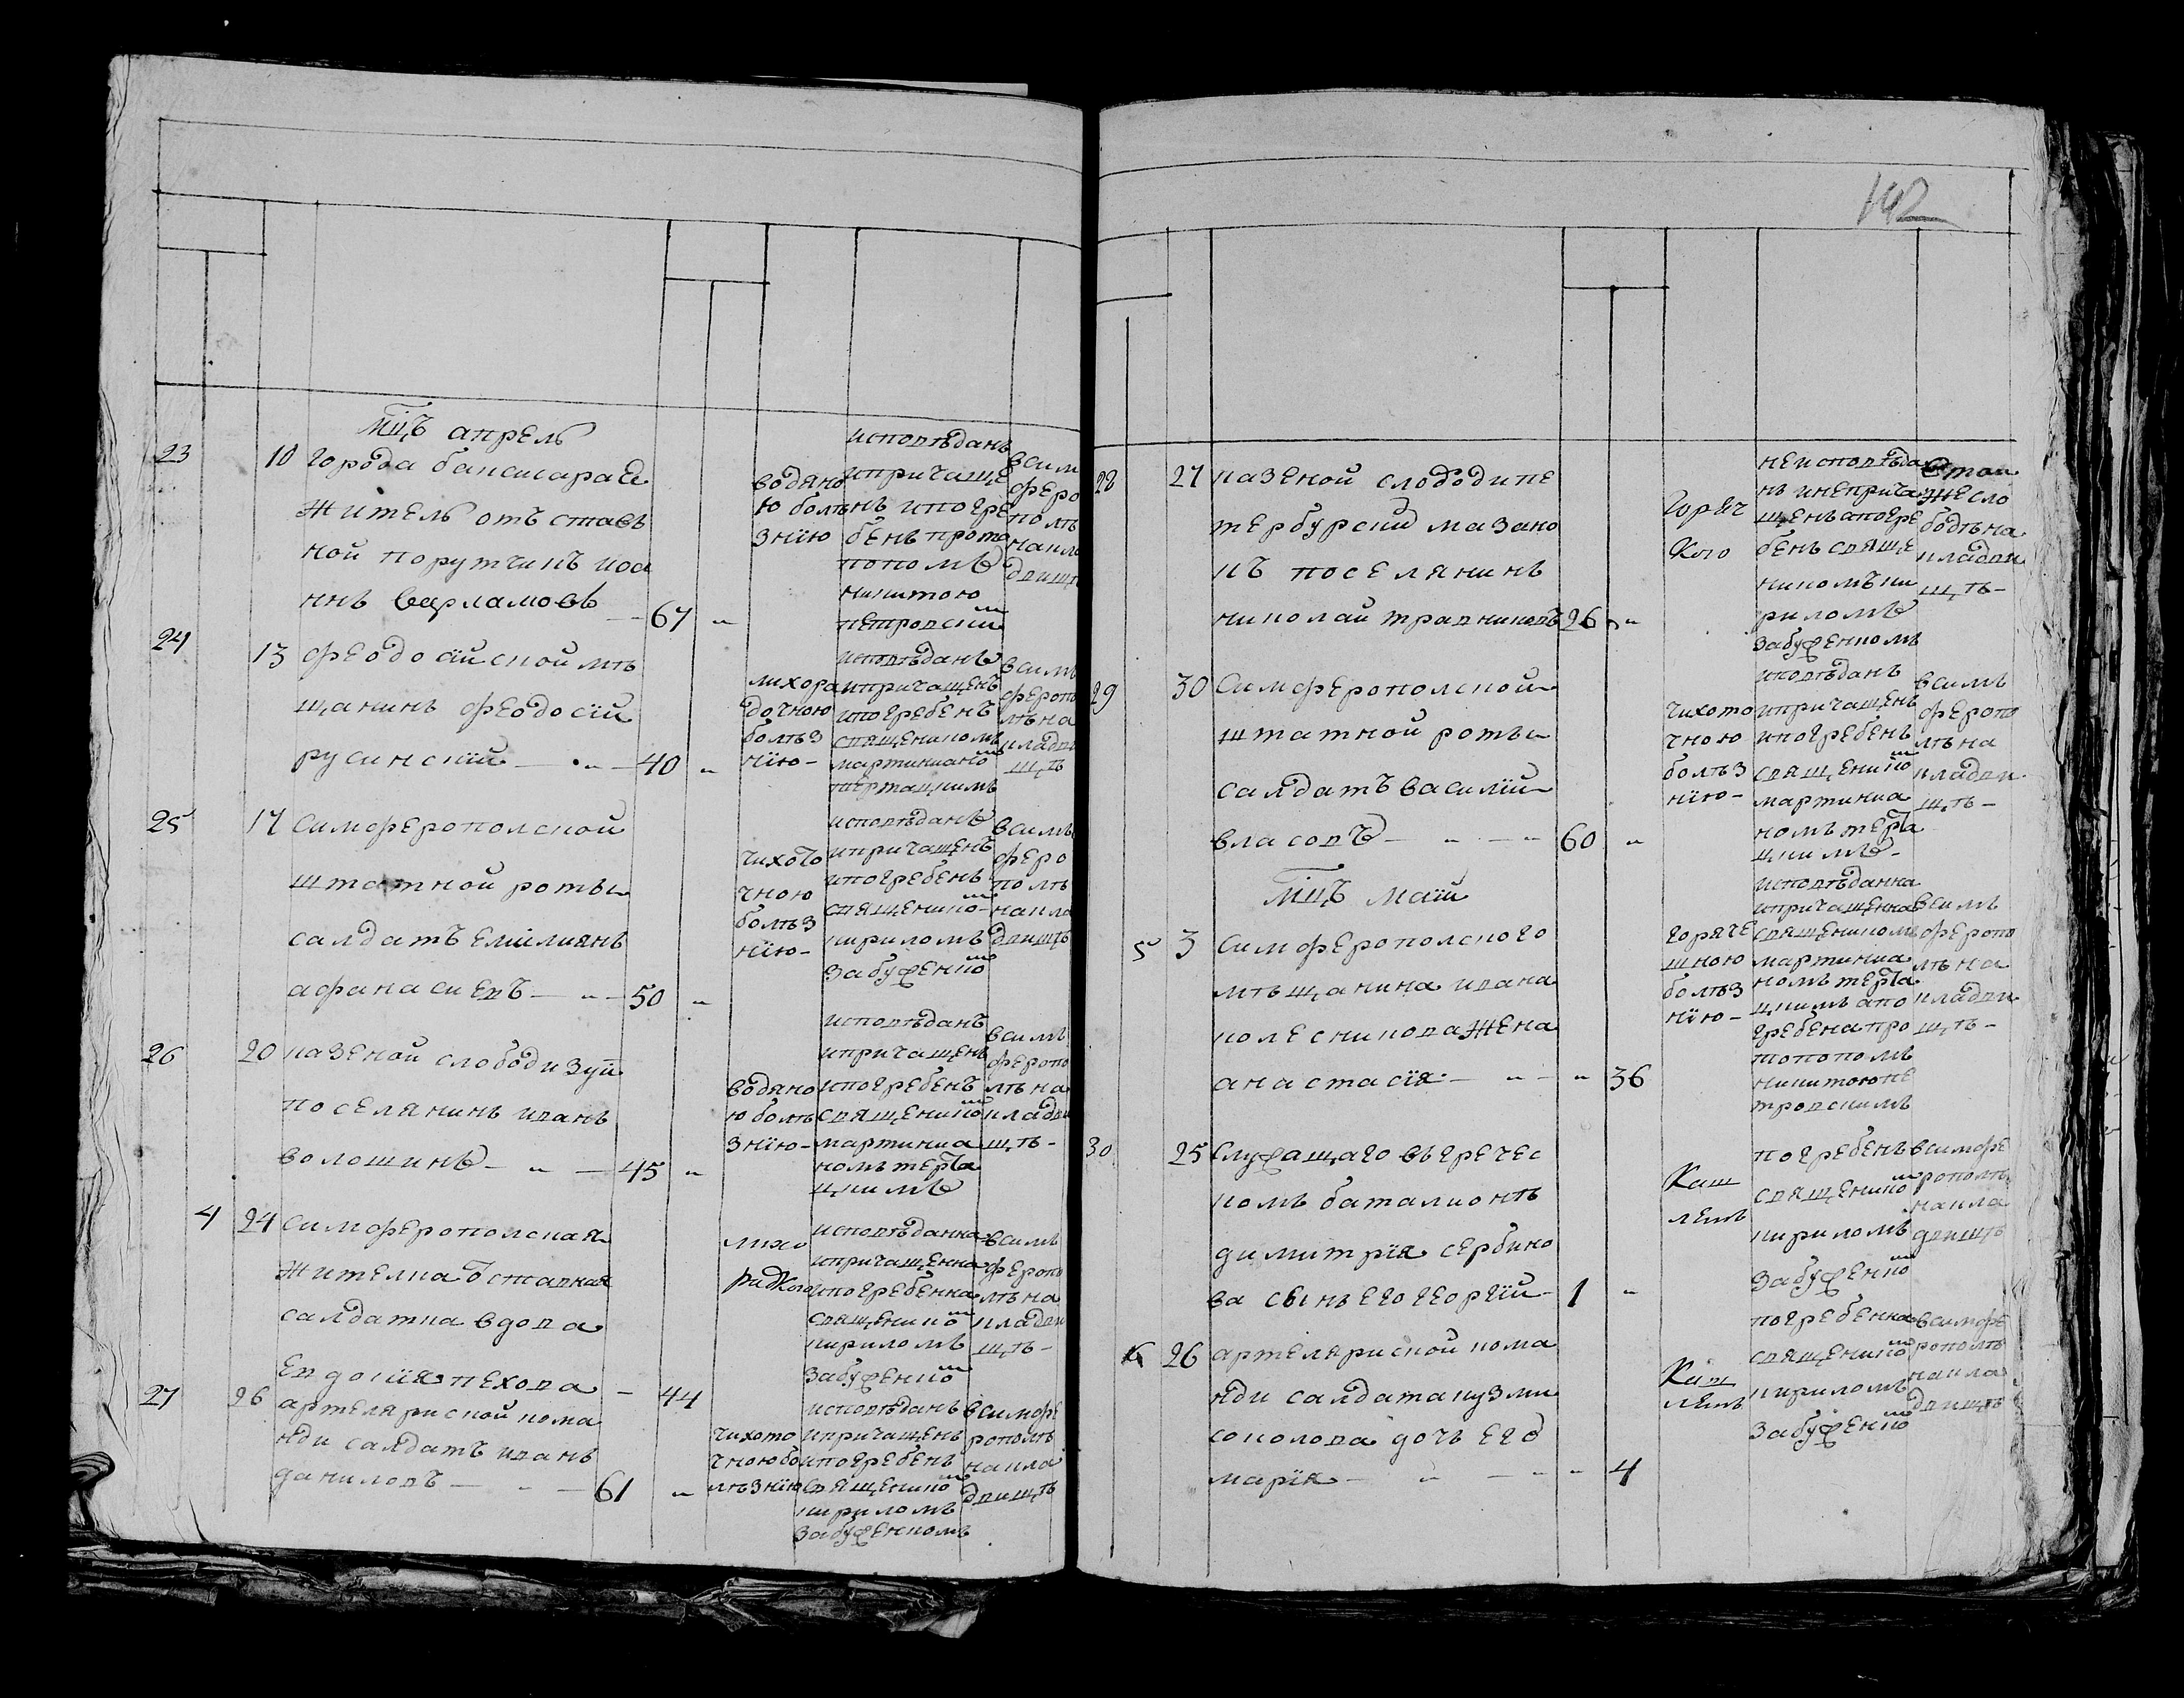 142
Мцъ апрель
23 10 города бакчисарае
житель отъ ставъ
ной порутчикъ иоа
ннъ варламовъ — 67 „
водяно
ю болѣ
знїю
исповѣданъ
ипричаще
нъ ипогре
бенъ прото
попомъ
никитою
петровским
всим
феро
полѣ
накла
24 13 феодосїйской мѣ
щанинъ феодосїй
русинскїй — „ — 40 „
лихора
дочною
болѣз
нїю —
исповѣданъ
ипричащенъ
ипогребенъ
священикомъ
мартиниано
всимъ
феропо
лѣ на
кладви
щѣ
25 17 симферополской
штатной роты
салдатъ емилиянъ
афанасиевъ — „ — 50 „
чихото
чною
болѣз
нїю —
исповѣданъ
ипричащенъ
ипогребенъ
священико
кириломъ
забуженко
всимъ
феро
полѣ
накла
двищѣ
26 20 казеной слободи зуи
поселянинъ иванъ
волошинъ — „ — 45 „
водяно
ю болѣ
знїю —
исповѣданъ
ипричащенъ
ипогребенъ
священико
мартиниа
номъ терта
цкимъ
всимъ
феропо
лѣ на
кладви
щѣ —
4 24 симферополская
жителка отставная
салдатка вдова
евдокия пехова — 44
лихо
радкою
исповѣданна
ипричащенна
ипогребенна
священико
кириломъ
забуженко
всимъ
феропо
лѣ на
кладви
щѣ —
27 26 артеляриской кома
нди салдатъ иванъ
даниловъ — „ — 61 „
чихото
чною бо
лѣзнїю
исповѣданъ
ипричащенъ
ипогребенъ
священико
кириломъ
забуженкомъ
всимфе
рополѣ
накла
двищѣ
28 27 казеной слободи пе
тербурский мазанк
ъ поселянинъ
николай травниковъ 26 „
горяч
кою
неисповѣда
нъ инеприча
щенъ апогре
бенъ свяще
никомъ ки
риломъ
забуженкомъ
втои
же сло
бодѣ на
кладви
щѣ —
29 30 Симферополской
штатной роты
салдатъ василїй
власовъ — „ — „ 60 „
чихото
чною
болѣз
нїю —
исповѣданъ
ипричащенъ
ипогребенъ
священико
мартиниа
номъ терта
цкимъ —
всимъ
феропо
лѣ на
кладви
щѣ —
Мцъ маїй
5 3 Симферополского
мѣщанина ивана
колесникова жена
анастасїя — „ — „ 36
горяче
шною
болѣз
нїю —
исповѣданна
ипричащенна
священикомъ
мартиниа
номъ терта
цкимъ апо
гребена про
топопомъ
никитою пе
тровскимъ
всимъ
феропо
лѣ на
кладви
щѣ —
30 25 Служащаго въ гречес
комъ баталионѣ
димитрїя сербино
ва сынъ его георгїй — 1 „
каш
лемъ
погребенъ
священико
кириломъ
забуженко
всимфе
рополѣ
накла
двищѣ
6 26 артелярнской кома
нди салдата кузми
соколова дочъ его
марїя — „ — „ „ 4
каш
лемъ
погребенна
священико
кириломъ
забуженко
всимфе
рополѣ
накла
двищѣ